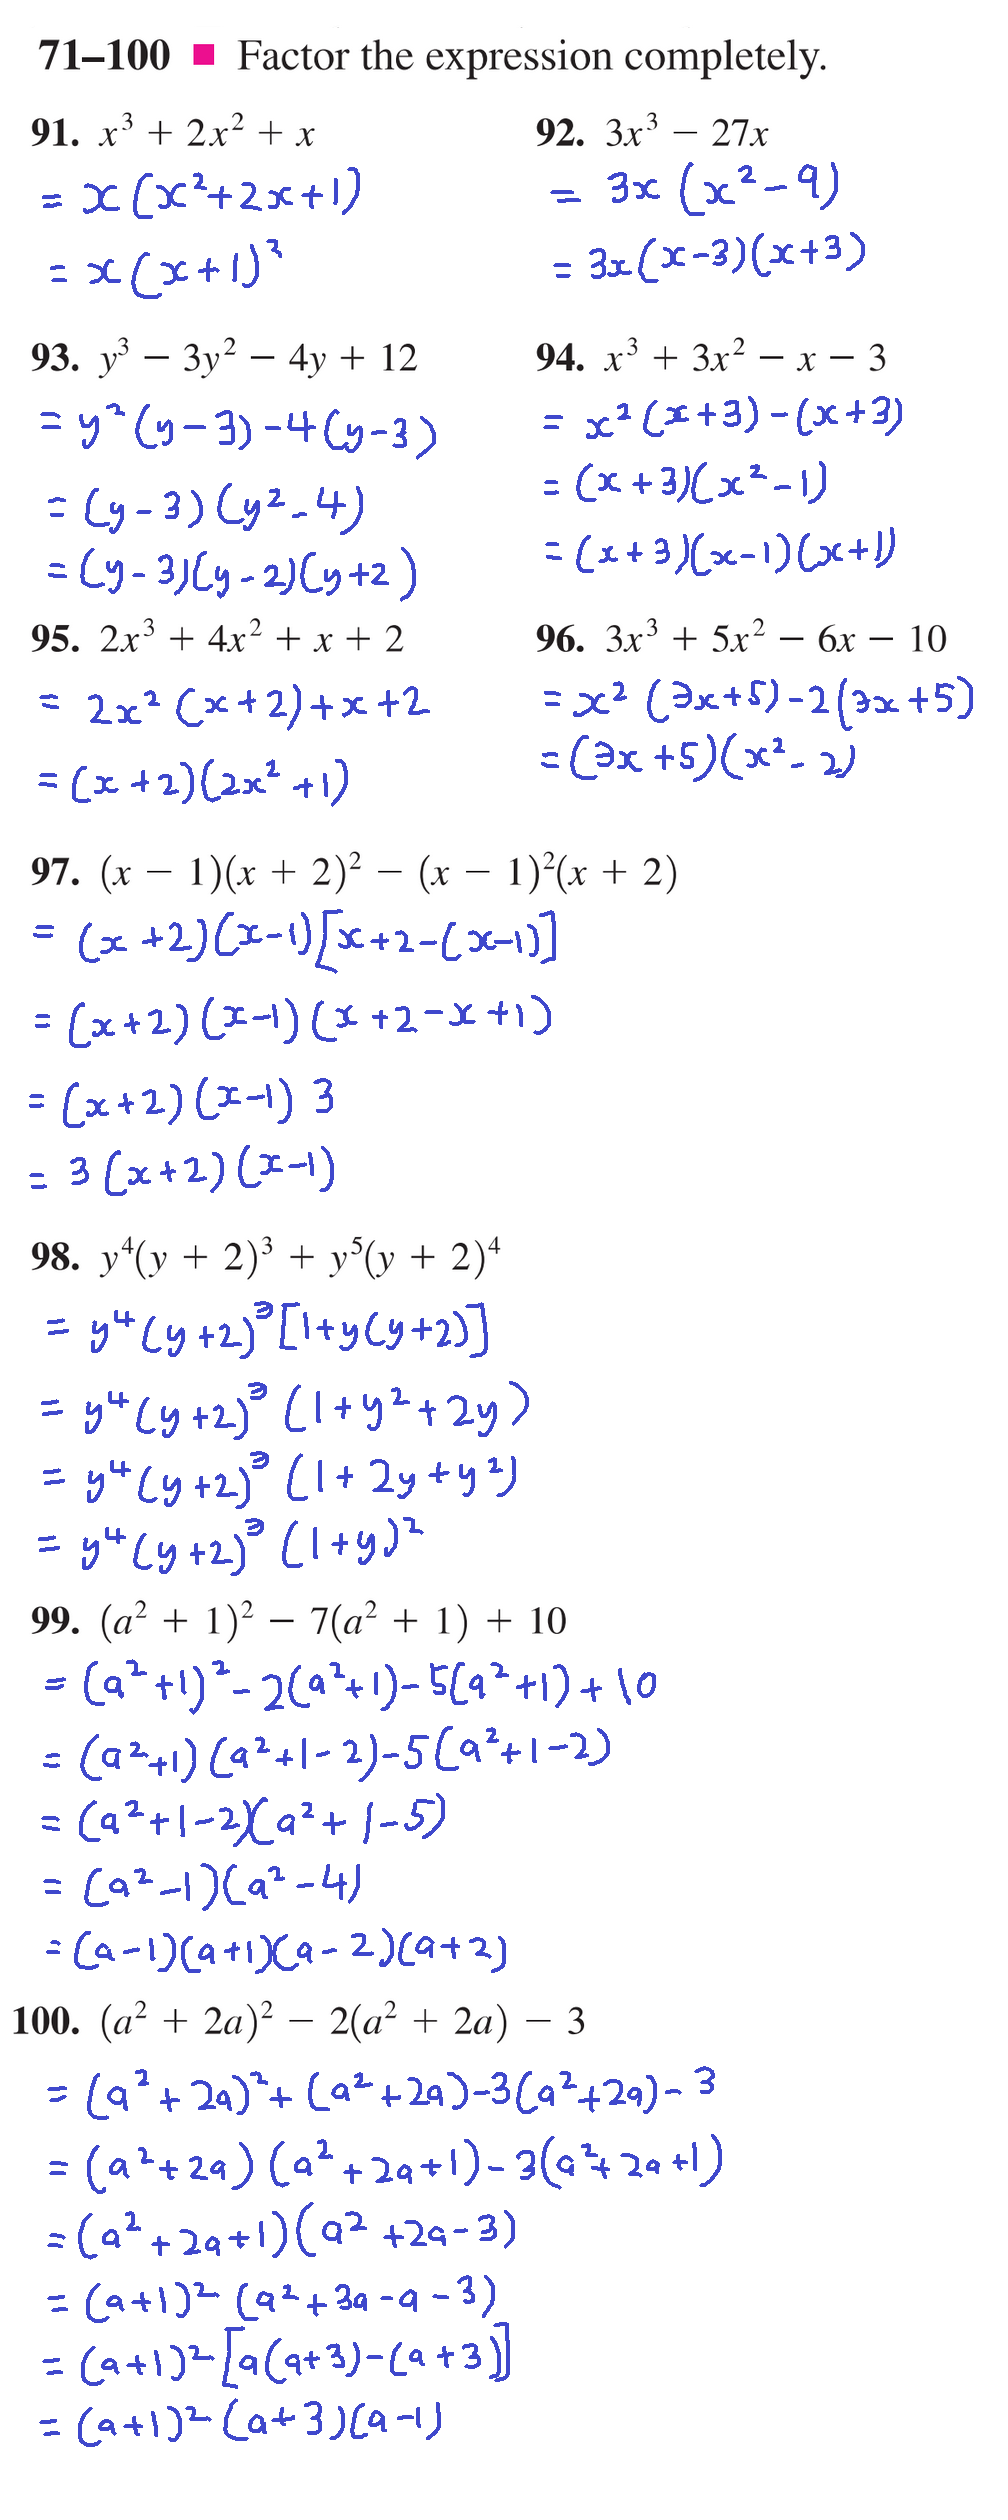 71–100 ■ Factor the expression completely.
91. x³ + 2x² + x
= x(x²+2x+1)
= x(x+1)²
92. 3x³ − 27x
= 3x (x²−9)
= 3x(x−3)(x+3)
93. y³ − 3y² − 4y + 12
= y²(y−3)−4(y−3)
= (y−3)(y²−4)
= (y−3)(y−2)(y+2)
94. x³ + 3x² − x − 3
= x²(x+3)−(x+3)
= (x+3)(x²−1)
= (x+3)(x−1)(x+1)
95. 2x³ + 4x² + x + 2
= 2x²(x+2)+x+2
= (x+2)(2x²+1)
96. 3x³ + 5x² − 6x − 10
= x²(3x+5)−2(3x+5)
= (3x+5)(x²−2)
97. (x − 1)(x + 2)² − (x − 1)²(x + 2)
= (x+2)(x−1)[x+2−(x−1)]
= (x+2)(x−1)(x+2−x+1)
= (x+2)(x−1) 3
= 3(x+2)(x−1)
98. y⁴(y + 2)³ + y⁵(y + 2)⁴
= y⁴(y+2)³[1+y(y+2)]
= y⁴(y+2)³(1+y²+2y)
= y⁴(y+2)³(1+2y+y²)
= y⁴(y+2)³(1+y)²
99. (a² + 1)² − 7(a² + 1) + 10
= (a²+1)²−2(a²+1)−5(a²+1)+10
= (a²+1)(a²+1−2)−5(a²+1−2)
= (a²+1−2)(a²+1−5)
= (a²−1)(a²−4)
= (a−1)(a+1)(a−2)(a+2)
100. (a² + 2a)² − 2(a² + 2a) − 3
= (a²+2a)²+(a²+2a)−3(a²+2a)−3
= (a²+2a)(a²+2a+1)−3(a²+2a+1)
= (a²+2a+1)(a²+2a−3)
= (a+1)²(a²+3a−a−3)
= (a+1)²[a(a+3)−(a+3)]
= (a+1)²(a+3)(a−1)